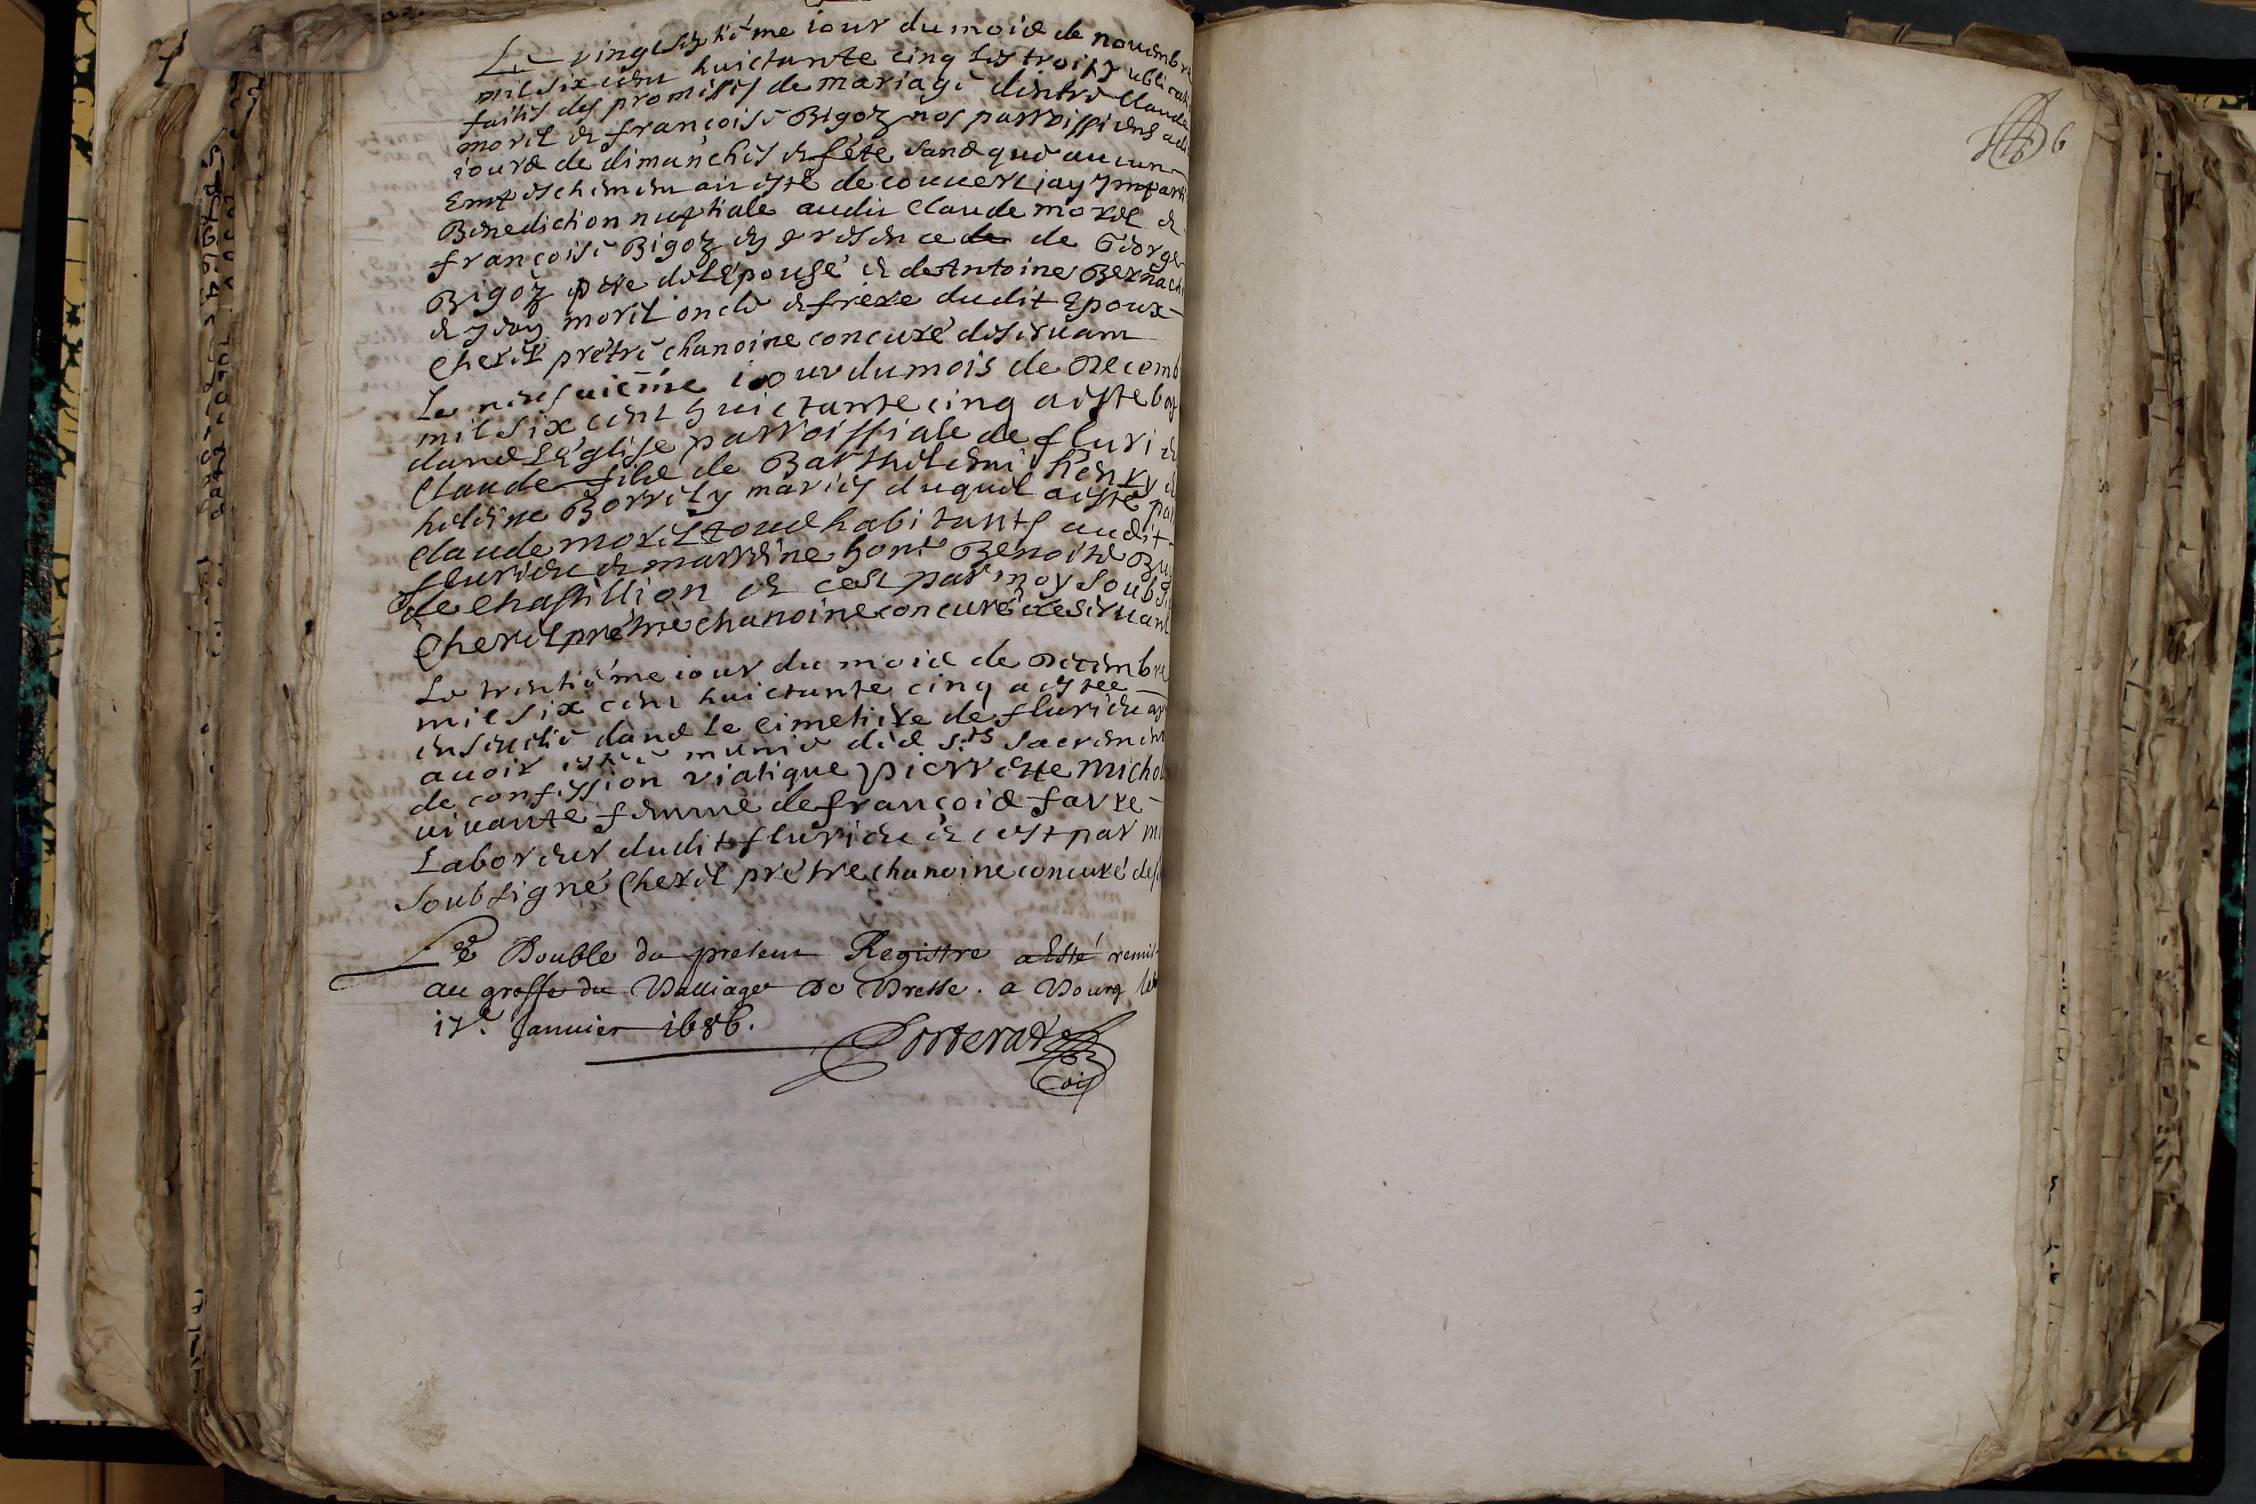 Le vingt septiéme iour du mois de nouembre
mil six cent huictante cinq les trois publicati
faites des promesses de mariage dentre Claude
morel et françoise Bigoz nos parroissiens a di
iours de dimanches et fête sans que aucun
Empeschement aie esté decouuert iay Imparti
Benediction nuptiale audit Claude morel et
françoise Bigoz en presence de de George
Bigoz pere de l'épouse et de Antoine Bernach
morel oncle et frere dudit Epoux
Cherel prétre chanoine concuré deseruant
Le neufuiême iour du mois de Decemb
mil six cent huictante cinq a este bap
dans l'église parroissiale de fluri
Claude fils de Barthelemi henry et
helene Borrely mariés duquel a esté par
Claude morel tous habitants audit
flurieu et marreine hon Benoite
de chastillion et cest par moy soubsi
Cherel prétre chanoine concuré deseruant
Le trentiéme iour du mois de Decembre
mil six cent huictante cinq a estee
enseuelie dans le cimetiere de flurieu ap
auoir estée munie des sts sacrement
de confession viatique pierrette Michol
viuante femme de françois favre
Laboreur dudit flurieu et cest par mo
soubsigné Cherel prétre chanoine concuré des
Le Double du present Registre a Esté remis
au greffe du Balliage De Bresse. a Bourg le
17e. Januier 1686.
6